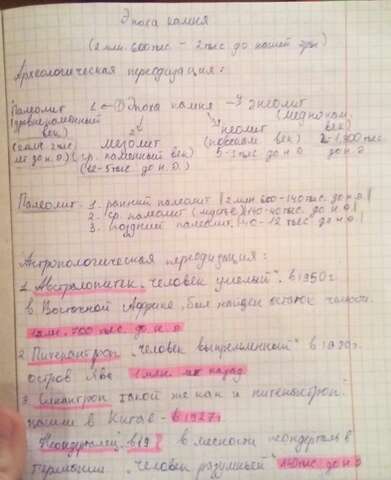 Эпоха камня
(2 млн. 600 тыс - 2 тыс до нашей эры)
Археологическая переодизация:
Палеолит 1 ← Эпоха камня → Энеолит
(древнекаменный век) 2 3 (меднокам. век)
мезолит неолит
(ср. каменный век) (новокам век)
(12-5 тыс до н.э.) 5-3 тыс до н.э. до н.э
Палеолит - 1. ранний палеолит (2 млн 600-140 тыс. до н.э.)
2. ср. палеолит (мустье) 140-40 тыс. до н.э.)
3. поздний палеолит. 40-12 тыс до н.э)
Астропологическая переодизация:
1. Австралопитек "человек умелый" в 1950 г.
в Восточной Африке, был найден остаток челюсти.
млн. 700 тыс. до н.э
2 Питекантроп "человек выпрямленный" в
остров Ява 1 млн. лет назад.
3 Синантроп такой же как и питекантроп.
нашли в Китае - в 1927г
Неондерталец в 19 в месности неондерталь в
Германии. "Человек разумный" 140 тыс. до н.э